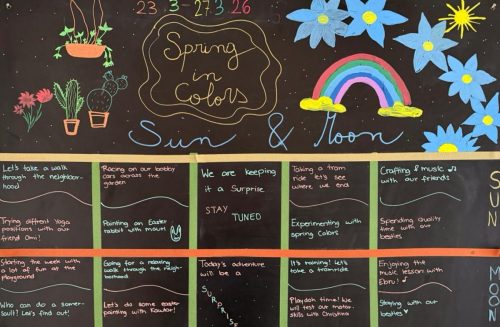 23.3-27.3.26
Spring
in
Colors
Sun & Moon
Let's take a walk
through the neighbor-
hood
Trying diffrent Yoga
positions with our
friend Omi!
Racing on our bobby
cars across the
garden
Painting an Easter
rabbit with
We are keeping
it a Surprise
STAY
TUNED
Taking a tram
ride let's see
where we end
Experimenting with
spring Colors
Crafting & music
with our friends
Spending quality
time with our
besties
SUN
Starting the week with
a lot of fun at the
playground
Who can do a somer-
sault? Let's find out!
Going for a relaxing
walk through the neigh-
borhood
Let's do some easter
painting with Kawtar!
Today's adventure
will be a
SURPRISE
It's training! Let's
take a tramride
Playdoh time! We
will test our motor-
skills with Christina
Enjoying the
music lesson with
Ebru
Singing with our
besties
MOON